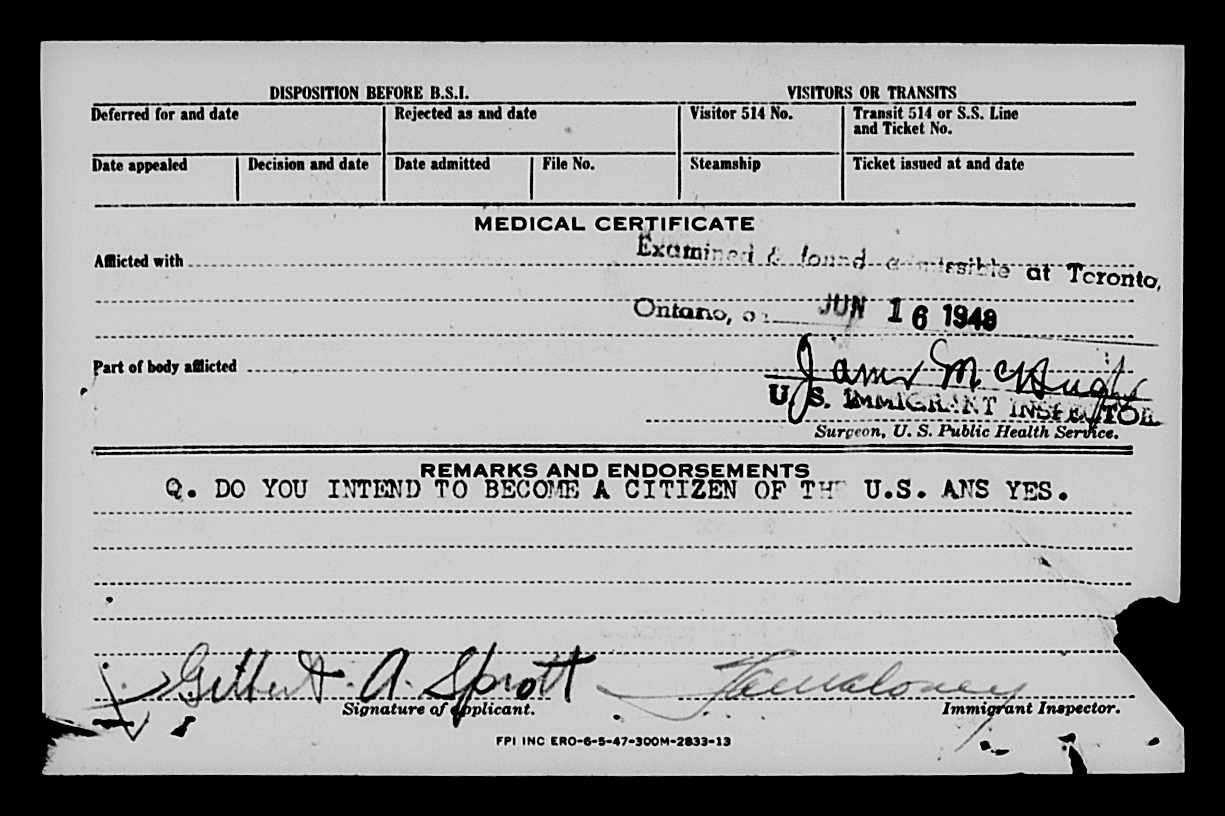 DISPOSITION BEFORE B.S.I.
VISITORS OR TRANSITS
Deferred for and date
Rejected as and date
Visitor 514 No.
Transit 514 or S.S. Line
and Ticket No.
Date appealed
Decision and date
Date admitted
File No.
Steamship
Ticket issued at and date
MEDICAL CERTIFICATE
Afflicted with
Examined & found admissible at Toronto,
Ontario, on JUN 16 1948
Part of body afflicted
James McHugh
U. S. IMMIGRANT INSPECTOR
Surgeon, U. S. Public Health Service.
REMARKS AND ENDORSEMENTS
Q. DO YOU INTEND TO BECOME A CITIZEN OF THE U.S. ANS YES.
Gilbert A. Sprott
Signature of applicant.
Immigrant Inspector.
FPI INC ERO-6-5-47-300M-2833-13